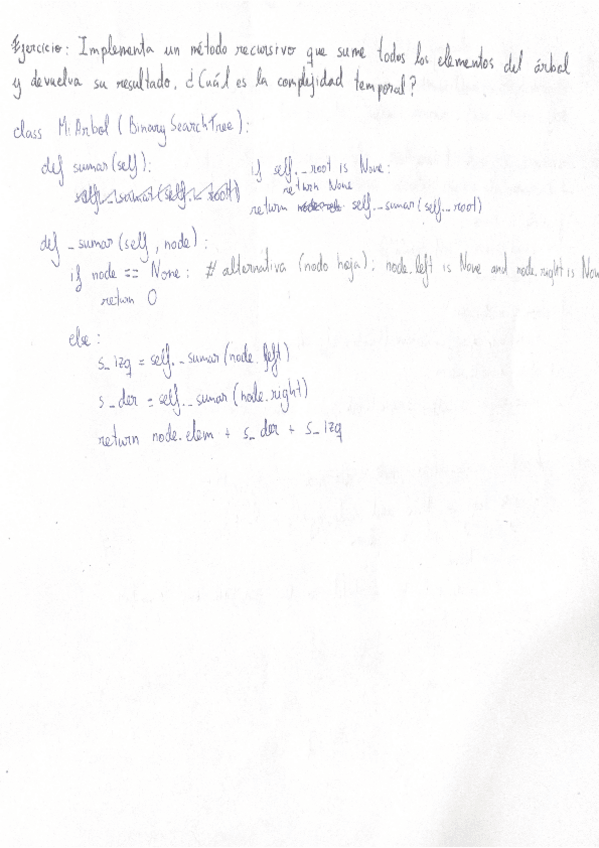 Ejercicio: Implementa un método recursivo que sume todos los elementos del árbol
y devuelva su resultado. ¿Cuál es la complejidad temporal?
class MiArbol (BinarySearchTree):
def sumar(self):
self._sumar(self._root)
if self._root is None:
return None
return self._sumar(self._root)
def _sumar(self, node):
if node == None: # alternativa (nodo hoja): node.left is None and node.right is Non
return 0
else:
s_izq = self._sumar(node.left)
s_der = self._sumar(node.right)
return node.elem + s_der + s_izq